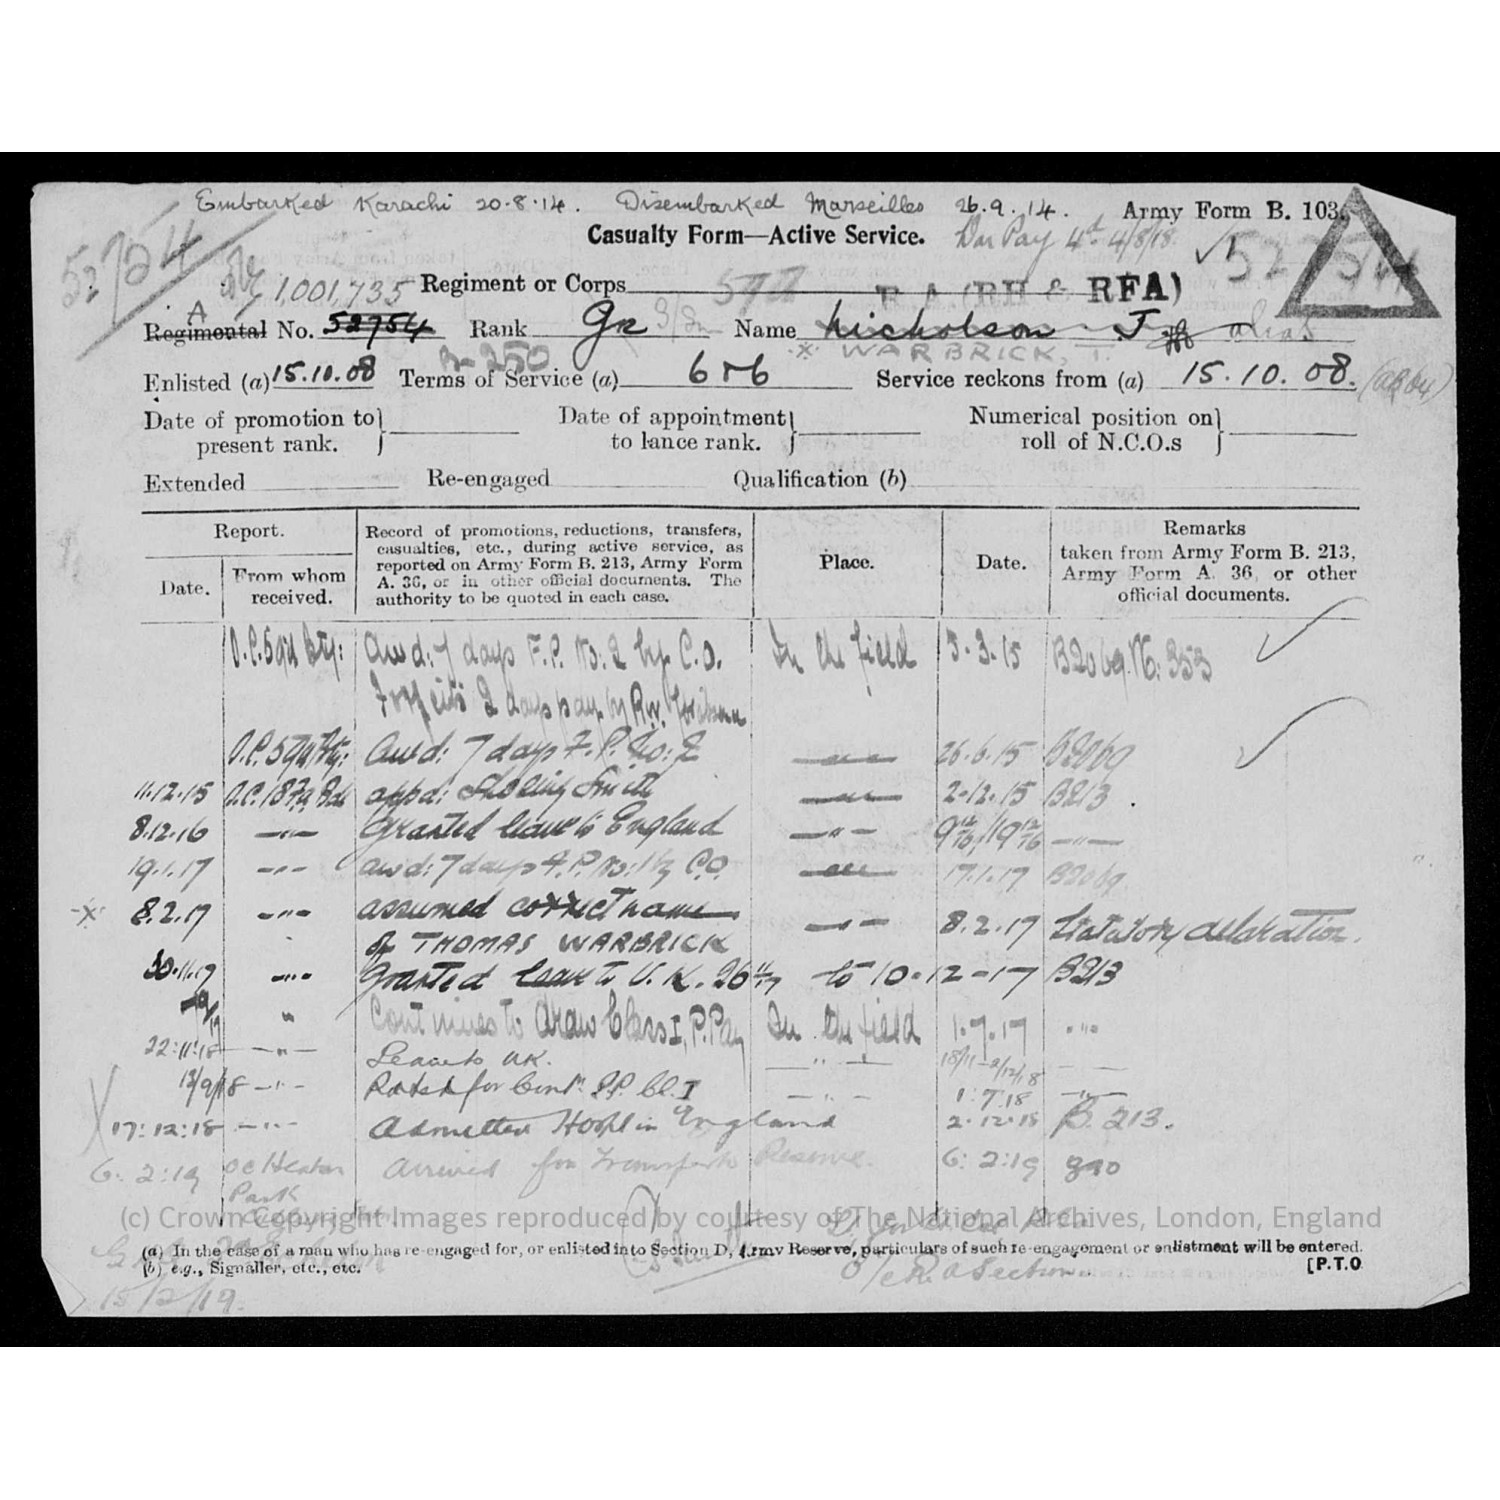 Embarked Karachi 20.8.14. Disembarked Marseilles 26.9.14. Army Form B. 103
Casualty Form—Active Service. War Pay 4d 4/8/18
52754
A 1,001,735 Regiment or Corps R.A. (RH & RFA)
Regimental No. 52754 Rank Gr Name Nicholson J alias
x WARBRICK, T.
Enlisted (a) 15.10.08 Terms of Service (a) 6 & 6 Service reckons from (a) 15.10.08.
Date of promotion to present rank. Date of appointment to lance rank. Numerical position on roll of N.C.Os
Extended Re-engaged Qualification (b)
Report. Date. From whom received.
Record of promotions, reductions, transfers, casualties, etc., during active service, as reported on Army Form B. 213, Army Form A. 36, or in other official documents. The authority to be quoted in each case.
Place. Date.
Remarks taken from Army Form B. 213, Army Form A. 36, or other official documents.
Awd: 7 days F.P. No. 2 by C.O. In the field 3.3.15 B2069
Forfeits 2 days pay by
Awd: 7 days F.P. No: 2 26.6.15 B2069
11.12.15 appd: Shoeing Smith —"— 2.12.15 B213.
8.12.16 —"— Granted leave to England —"— —"—
19.1.17 —"— awd: 7 days F.P. No: 1 by C.O. —"— 17.1.17 B2069
x 8.2.17 —"— assumed correct name —"— 8.2.17 Statutory declaration.
of THOMAS WARBRICK
30.11.17 —"— Granted leave to U.K. 26 11/17 to 10-12-17 B213
" Continues to draw Class I, P. Pay In the field 1.7.17 "
22:11:18 —"— Leave to UK. —"— 18/11-2/12/18 —
13/9/18 —"— Rated for Cont. P.P. Cl. I —"— 1:7:18 —"—
17:12:18 —"— Admitted Hospl in England 2.12.18 B.213.
6:2:19 OC Heaton Park Arrived for Transfer to Reserve. 6:2:19
(c) Crown Copyright Images reproduced by courtesy of The National Archives, London, England
(a) In the case of a man who has re-engaged for, or enlisted into Section D, Army Reserve, particulars of such re-engagement or enlistment will be entered.
(b) e.g., Signaller, etc., etc. [P.T.O
15/2/19.